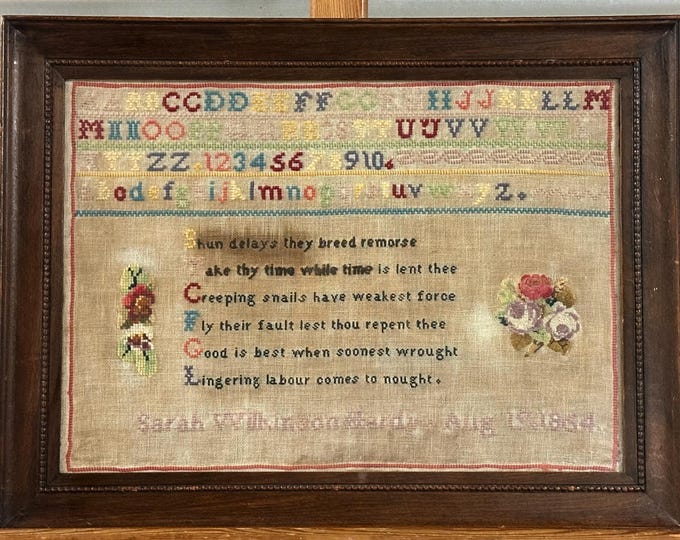 CCDD FF II JJ LLM
M OO UU VV
ZZ 12345678910.
bcdefg ijklmnop uv yz.
Shun delays they breed remorse
Take thy time while time is lent thee
Creeping snails have weakest force
Fly their fault lest thou repent thee
Good is best when soonest wrought
Lingering labour comes to nought.
Sarah Wilkinson Aug 15 1864.